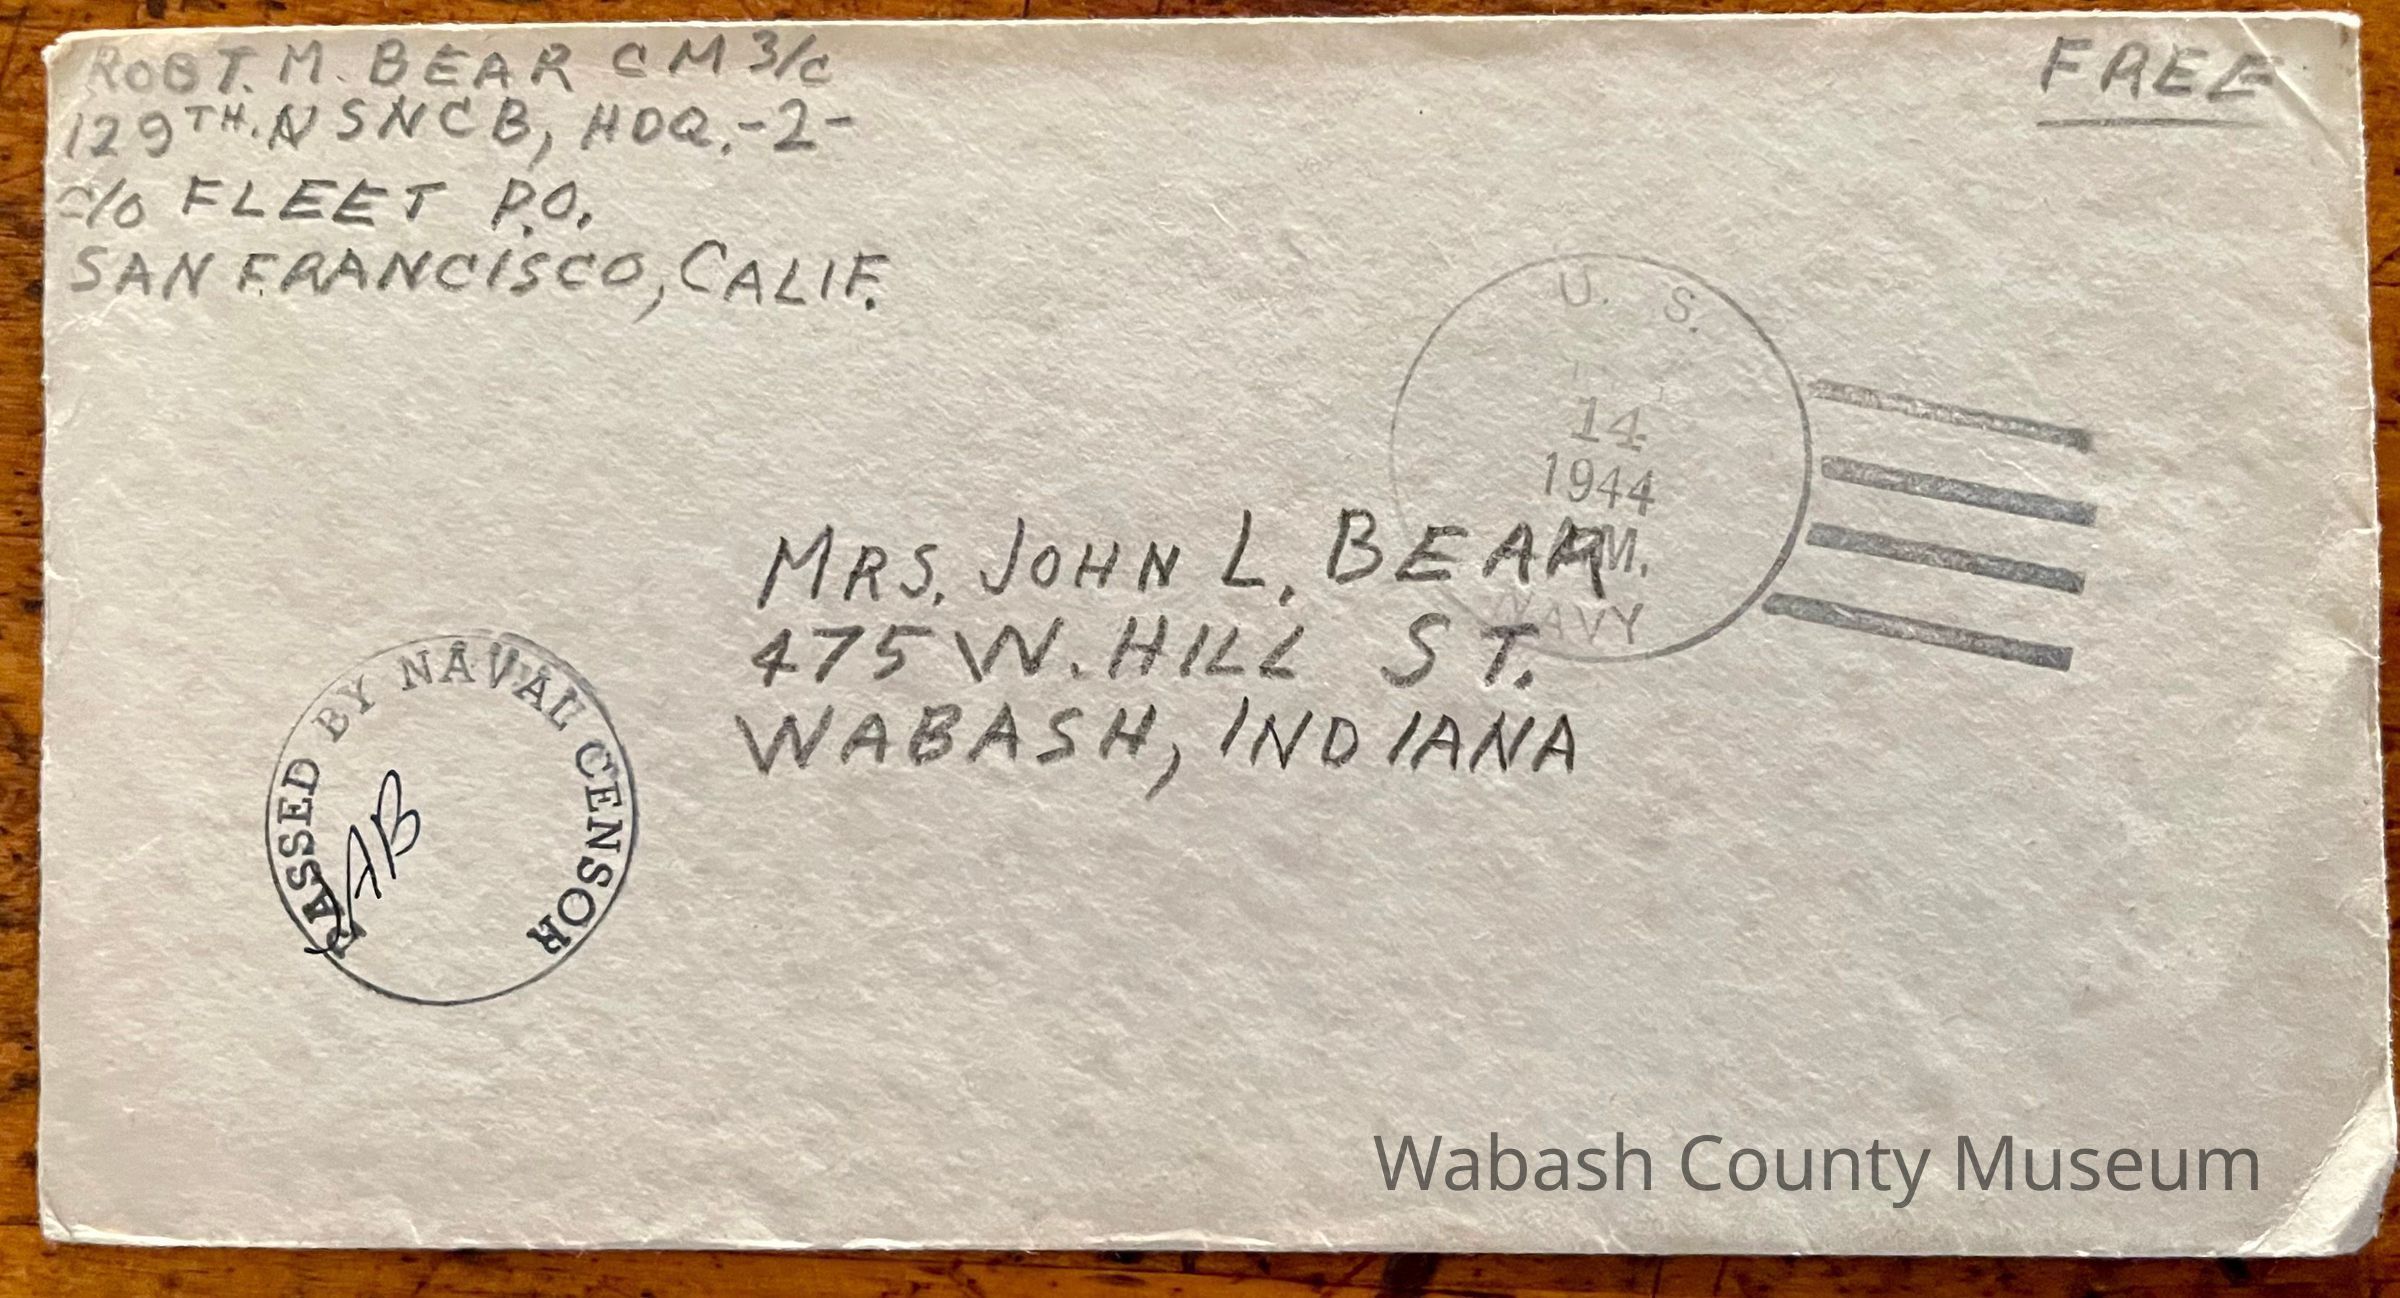 ROBT. M. BEAR CM 3/c
129TH. NSNCB, HDQ.-2-
c/o FLEET P.O.
SAN FRANCISCO, CALIF.
FREE
U. S.
14
1944
M.
NAVY
MRS. JOHN L. BEAR
475 W. HILL ST.
WABASH, INDIANA
PASSED BY NAVAL CENSOR
Wabash County Museum